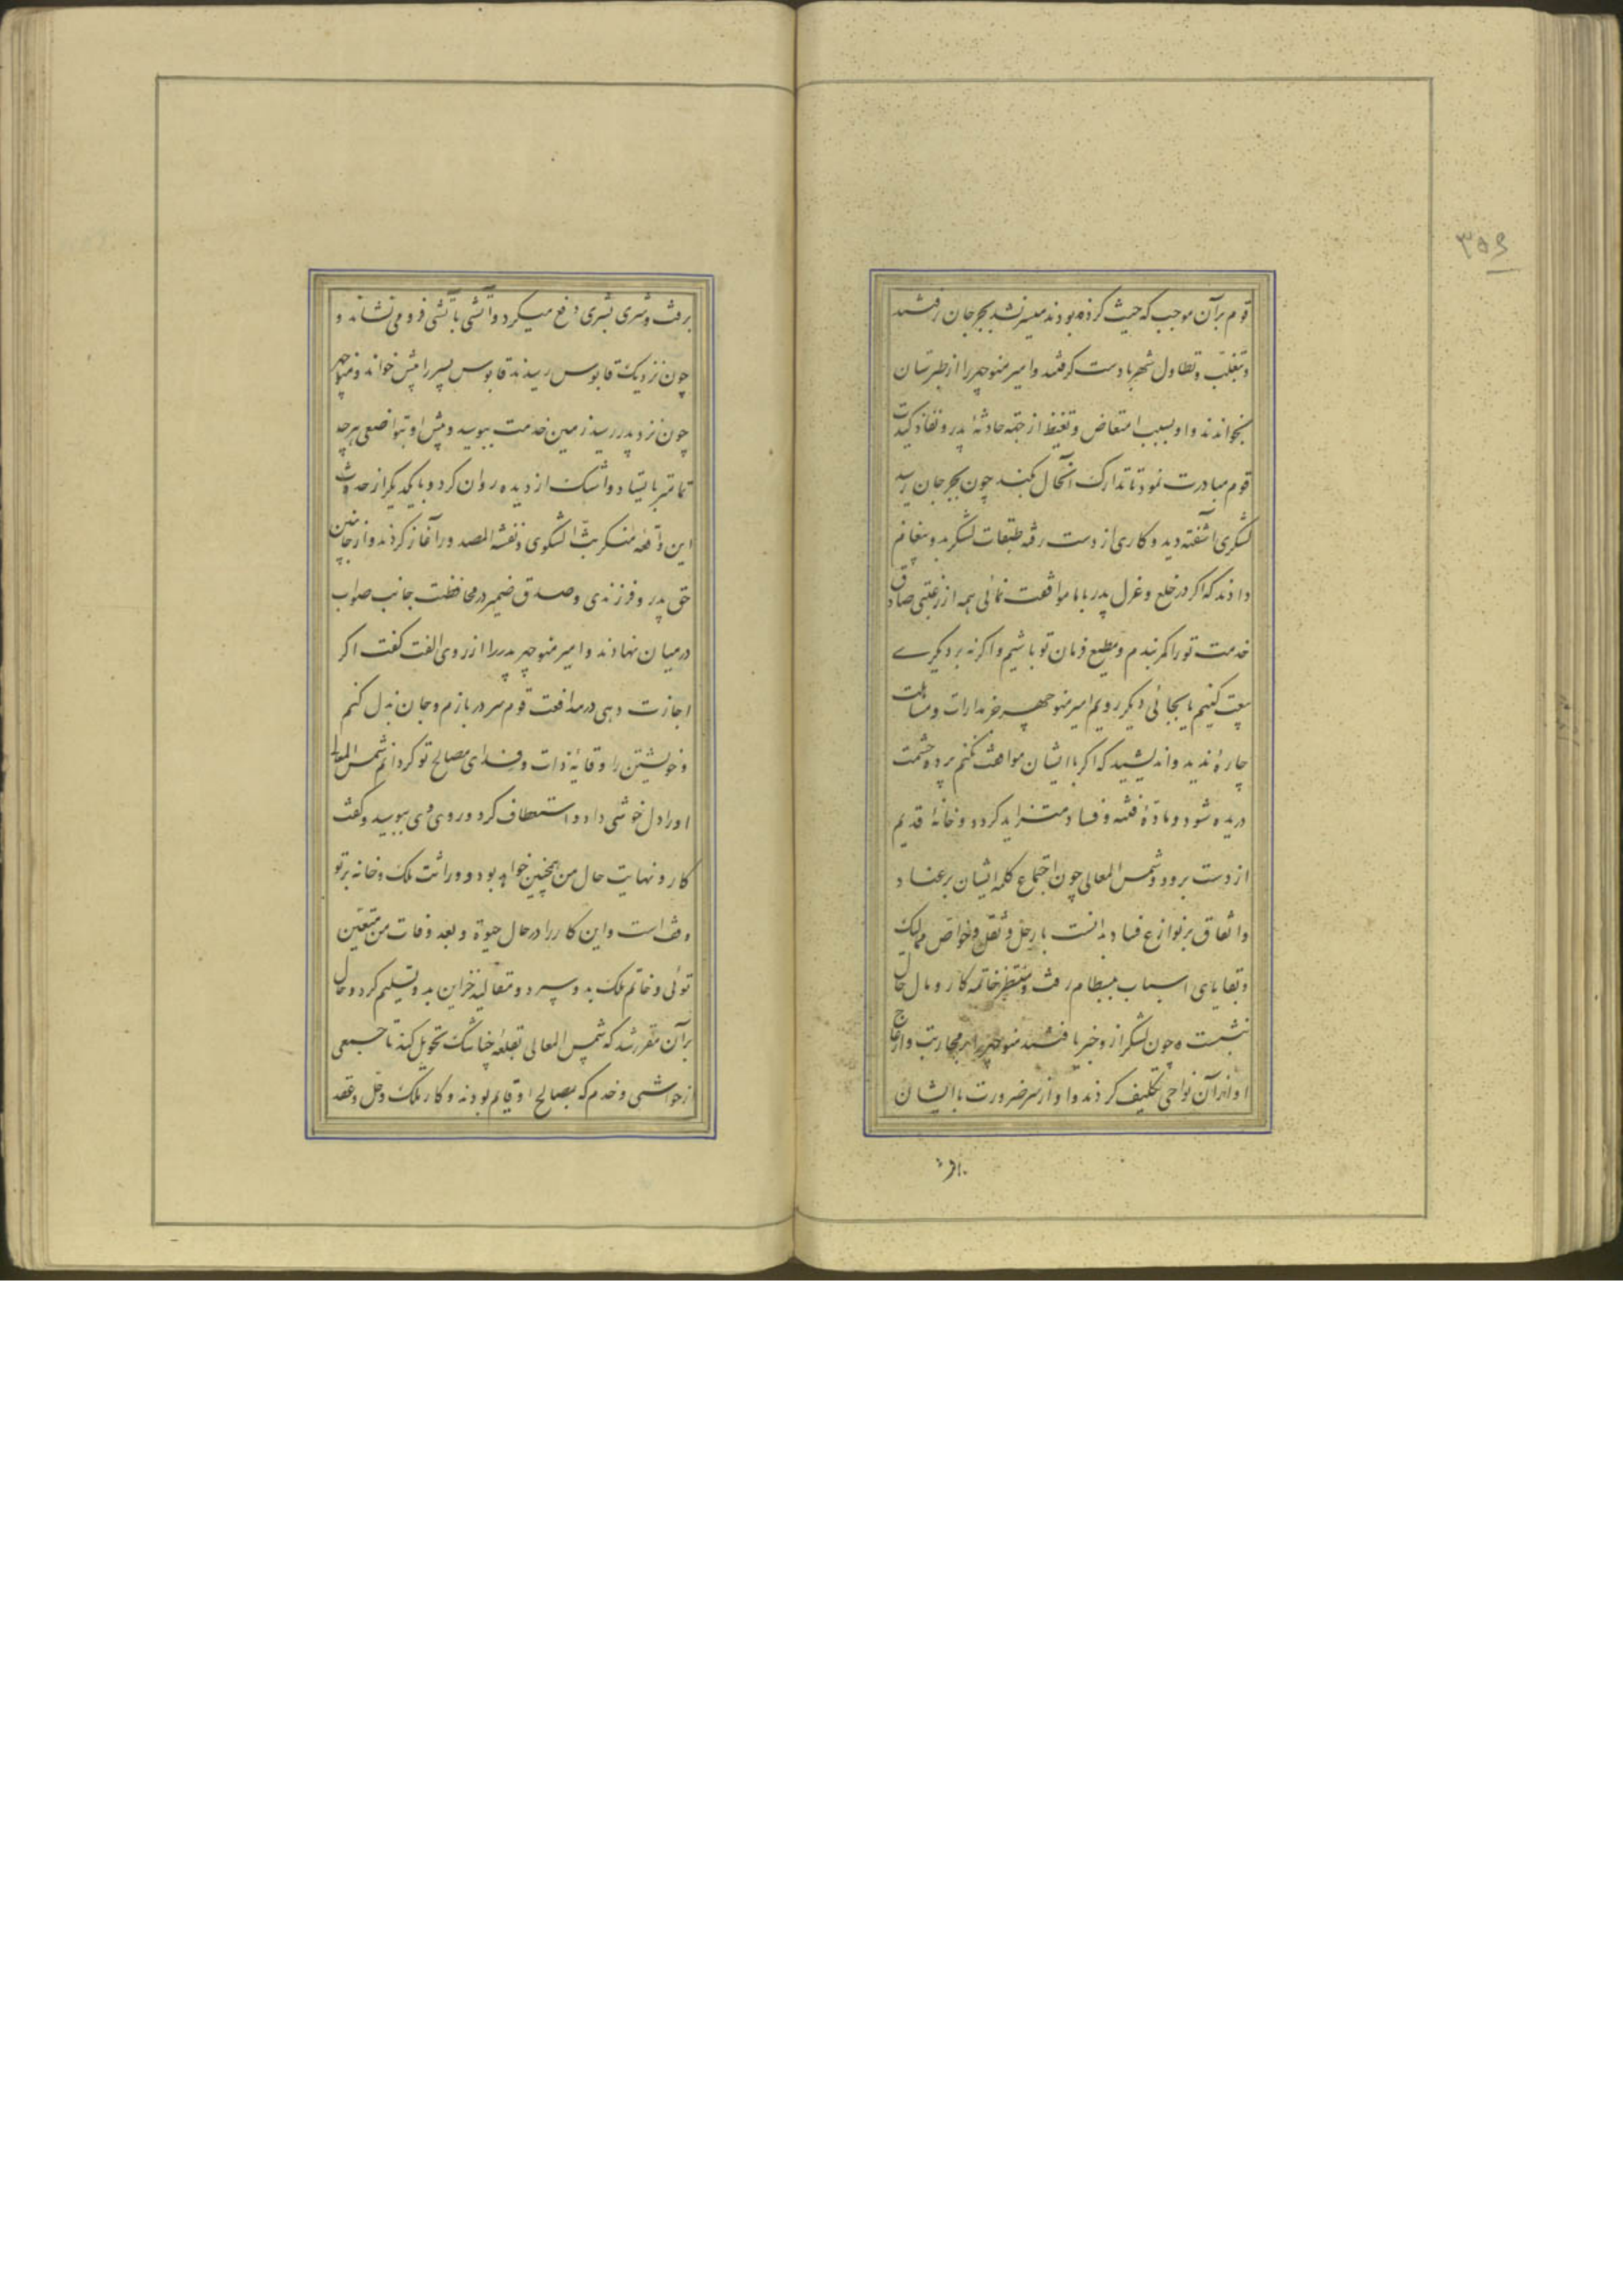 ۳۵۶
قوم برآن موجب که حیث کرده بودند میسر نشد بجرجان رفتند
و تغلب و تطاول شهر با دست گرفتند و امیر منوچهر را از طبرستان
بخواندند و او بسبب امتعاض و تغیظ از جهة حادثهٔ پدر و نفاذ کیدت
قوم مبادرت نمود تا تدارک آنحال بکند چون بجرجان رسید
لشکری آشفته دید و کاری از دست رفته طبقات لشکر بدو پیغام
داذند که اکر در خلع و عزل پدر با ما موافقت نمائی همه از رغبتی صادق
خدمت تو را کمر بندیم و مطیع فرمان تو باشیم و اکرنه بر دیگرے
بیعت کنیم یا بجائی دیگر رویم امیر منوچهر جز مدارات و مساهلت
چارهٔ ندید و اندیشید که اکر با ایشان مواهنت نکنم پردهٔ حشمت
دریده شود و مادّهٔ فتنه و فساد متزاید کردد و خانهٔ قدیم
از دست برود و شمس المعالی چون اجتماع کلمه ایشان بر عناد
و اتفاق بر نوازع فساد بدانست با رحل و ثقل و خواص ممالیک
و بقایای اسباب ببسطام رفت و منتظر خاتمه کار و مآل حال
نشست و چون لشکر از و خبر یافتند منوچهر را بر محاربت و ازعاج
او از آن نواحی تکلیف کردند و او از سر ضرورت با ایشان
برفت
برفت و شری بشری دفع میکرد و آتشی بآتشی فرو می نشاند و
چون نزدیک قابوس رسیدند قابوس پسر را پیش خواند و منوچهر
چون نزد پدر رسید زمین خدمت ببوسید و پیش او بتواضعی هرچه
تمامتر بایستاد و اشک از دیده روان کرد و با یکدیگر از حدوث
این واقعهٔ منکر بث الشکوی و نفثة المصدور آغاز کردند و از جانبین
حق پدر و فرزندی و صدق ضمیر در محافظت جانب صواب
در میان نهادند و امیر منوچهر پدر را از روی الفت کفت اکر
اجازت دهی در مدافعت قوم سر دربازم و جان بذل کنم
و خویشتن را وقایهٔ ذات و فدای مصالح تو کردانم شمس المعالی
او را دل خوشی داد و استعطاف کرد و روی وی ببوسید و کفت
کار و نهایت حال من همچنین خواهد بود و وراثت ملک و خانه بر تو
وقف است و این کار را در حال حیوة و بعد وفات من متعین
توئی و خاتم ملک بدو سپرد و مقالید خزاین بدو تسلیم کرد و حال
برآن مقرر شد که شمس المعالی بقلعه جناشک تحویل کند تا جمعی
از حواشی و خدم که بمصالح او قایم بودند و کار ملک و حل و عقد